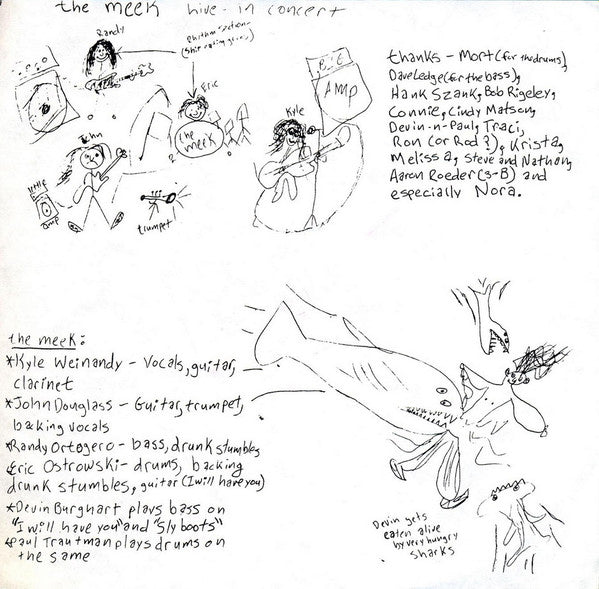 the meek live - in concert
Randy
Rhithm section
Eric
the
meek
Kyle
BIG
AMP
John
little
amp
trumpet
thanks - Mort (for the drums),
Dave Ledge (for the bass),
Hank Szank, Bob Rigeley,
Connie, Cindy Matson,
Devin-n-Paul, Traci,
Ron (or Rod?), Krista,
Melissa, Steve and Nathan,
Aaron Roeder (3-B) and
especially Nora.
the meek:
*Kyle Weinandy - Vocals, guitar,
clarinet
*John Douglass - Guitar, trumpet,
backing vocals
*Randy Ortogero - bass, drunk stumbles
*Eric Ostrowski - drums, backing
drunk stumbles, guitar (I will have you)
*Devin Burghart plays bass on
"I will have you" and "Sly boots"
*Paul Trautman plays drums on
the same
Devin gets
eaten alive
by very hungry
sharks